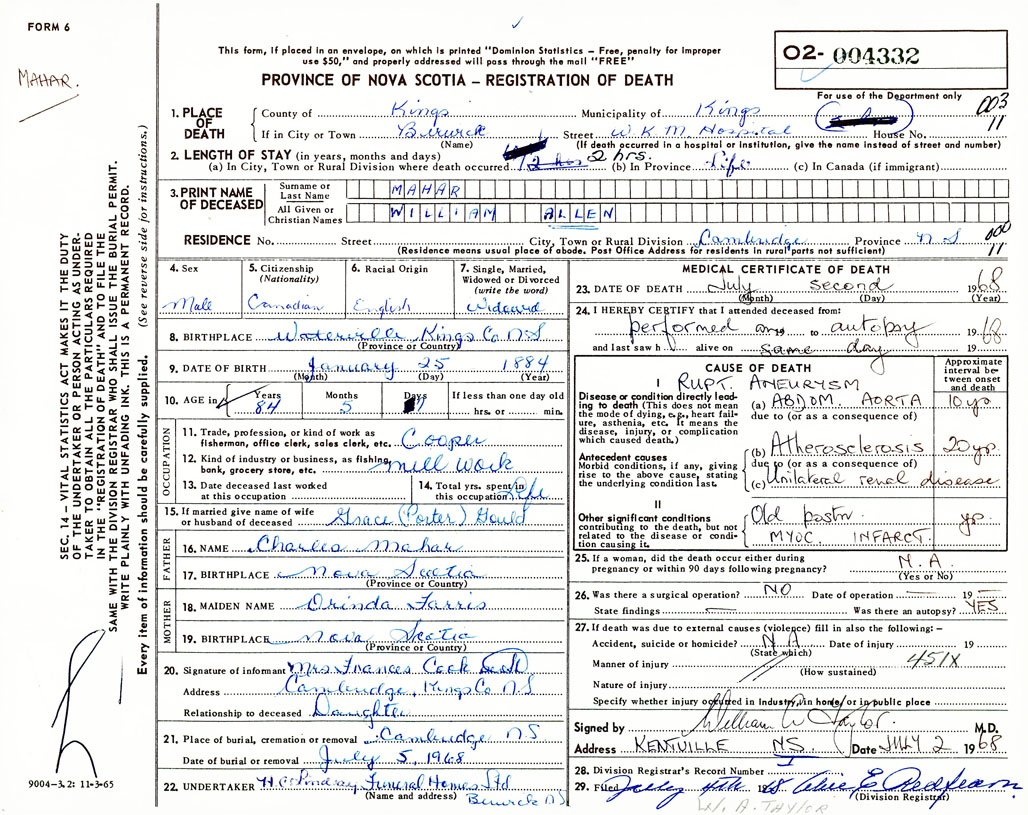 FORM 6
MAHAR.
This form, if placed in an envelope, on which is printed "Dominion Statistics – Free, penalty for improper
use $50," and properly addressed will pass through the mail "FREE"
PROVINCE OF NOVA SCOTIA – REGISTRATION OF DEATH
02- 004332
For use of the Department only
003
11
1. PLACE OF DEATH
County of Kings Municipality of Kings
If in City or Town Berwick Street W.K.M. Hospital House No.
(Name) (If death occurred in a hospital or institution, give the name instead of street and number)
2. LENGTH OF STAY (in years, months and days)
(a) In City, Town or Rural Division where death occurred 2 hrs. (b) In Province Life (c) In Canada (if immigrant)
3. PRINT NAME OF DECEASED
Surname or Last Name MAHAR
All Given or Christian Names WILLIAM ALLEN
RESIDENCE No. Street City, Town or Rural Division Cambridge Province NS
(Residence means usual place of abode. Post Office Address for residents in rural parts not sufficient)
000
11
4. Sex
Male
5. Citizenship
(Nationality)
Canadian
6. Racial Origin
English
7. Single, Married,
Widowed or Divorced
(write the word)
8. BIRTHPLACE Waterville Kings Co NS
(Province or Country)
9. DATE OF BIRTH January 25 1884
(Month) (Day) (Year)
10. AGE in Years 84 Months 5 Days 7 If less than one day old
hrs. or min.
OCCUPATION
11. Trade, profession, or kind of work as
fisherman, office clerk, sales clerk, etc. Cooper
12. Kind of industry or business, as fishing,
bank, grocery store, etc. mill work
13. Date deceased last worked
at this occupation
14. Total yrs. spent in
this occupation Life
15. If married give name of wife
or husband of deceased Grace (Porter) Gould
FATHER
16. NAME Charles Mahar
17. BIRTHPLACE Nova Scotia
(Province or Country)
MOTHER
18. MAIDEN NAME Orinda Farris
19. BIRTHPLACE Nova Scotia
(Province or Country)
20. Signature of informant Mrs Frances Cook
Address Cambridge, Kings Co NS
Relationship to deceased Daughter
21. Place of burial, cremation or removal Cambridge NS
Date of burial or removal July 5, 1968
22. UNDERTAKER Funeral Homes Ltd
(Name and address) Berwick NS
MEDICAL CERTIFICATE OF DEATH
23. DATE OF DEATH July second 1968
(Month) (Day) (Year)
24. I HEREBY CERTIFY that I attended deceased from:
performed an to autopsy 1968
and last saw h alive on same day 19
CAUSE OF DEATH
Approximate
interval be-
tween onset
and death
I
Disease or condition directly lead-
ing to death (This does not mean
the mode of dying, e.g., heart fail-
ure, asthenia, etc. It means the
disease, injury, or complication
which caused death.)
RUPT. ANEURYSM
(a) ABDOM AORTA 10 yr
due to (or as a consequence of)
Antecedent causes
Morbid conditions, if any, giving
rise to the above cause, stating
the underlying condition last.
(b) Atherosclerosis 20 yr
due to (or as a consequence of)
(c) Unilateral renal disease
II
Other significant conditions
contributing to the death, but not
related to the disease or condi-
tion causing it.
Old postr. yr.
MYOC INFARCT.
25. If a woman, did the death occur either during
pregnancy or within 90 days following pregnancy? N.A.
(Yes or No)
26. Was there a surgical operation? NO Date of operation — 19 —
State findings — Was there an autopsy? YES
27. If death was due to external causes (violence) fill in also the following:–
Accident, suicide or homicide? N.A Date of injury 19
(State which)
Manner of injury 451X
(How sustained)
Nature of injury
Specify whether injury occurred in Industry, in home, or in public place
Signed by William A Taylor M.D.
Address KENTVILLE NS Date JULY 2 1968
28. Division Registrar's Record Number
29. Filed July 4th 1968
(Division Registrar)
W. A. TAYLOR
SEC. 14 – VITAL STATISTICS ACT MAKES IT THE DUTY
OF THE UNDERTAKER OR PERSON ACTING AS UNDER-
TAKER TO OBTAIN ALL THE PARTICULARS REQUIRED
IN THE "REGISTRATION OF DEATH" AND TO FILE THE
SAME WITH THE DIVISION REGISTRAR WHO SHALL ISSUE THE BURIAL PERMIT.
WRITE PLAINLY WITH UNFADING INK. THIS IS A PERMANENT RECORD.
Every item of information should be carefully supplied. (See reverse side for instructions.)
9004-3.2: 11-3-65